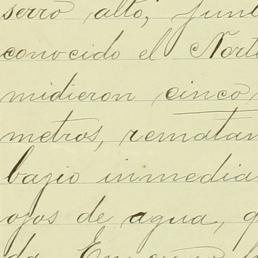 serro alto, junt
conocido el Norte
midieron cinco
metros, rematan
bajio inmedia
ojos de agua, q
da